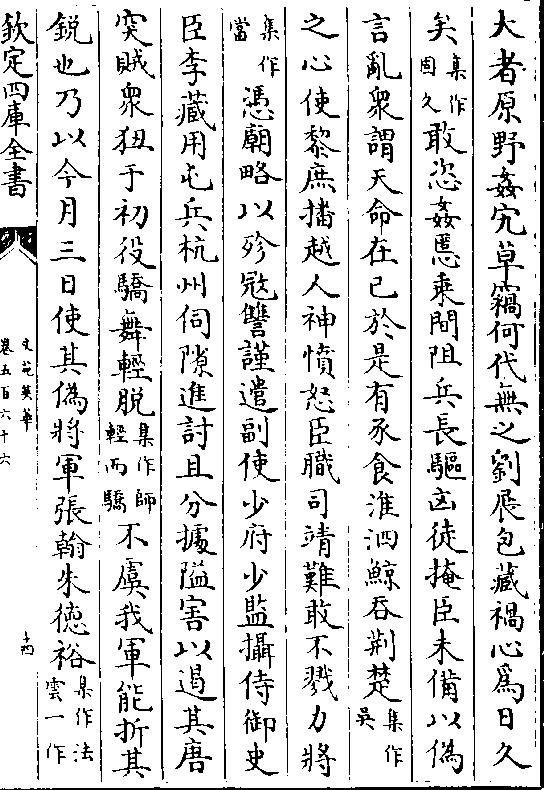 大者原野姦宄草竊何代無之劉展包藏禍心爲日久
矣集作固久敢恣姦慝乘間阻兵長驅凶徒掩臣未備以偽
言亂衆謂天命在已於是有豕食淮泗鯨吞荆楚集作吳
之心使黎庶播越人神憤怒臣職司靖難敢不戮力將
集作當憑廟略以殄冦讐謹遣副使少府少監攝侍御史
臣李藏用屯兵杭州伺隙進討且分據隘害以遏其唐
突賊衆狃于初役驕舞輕脱集作師輕而驕不虞我軍能折其
鋭也乃以今月三日使其偽將軍張翰朱德裕集作法雲一作
欽定四庫全書
文苑英華
卷五百六十六
十四